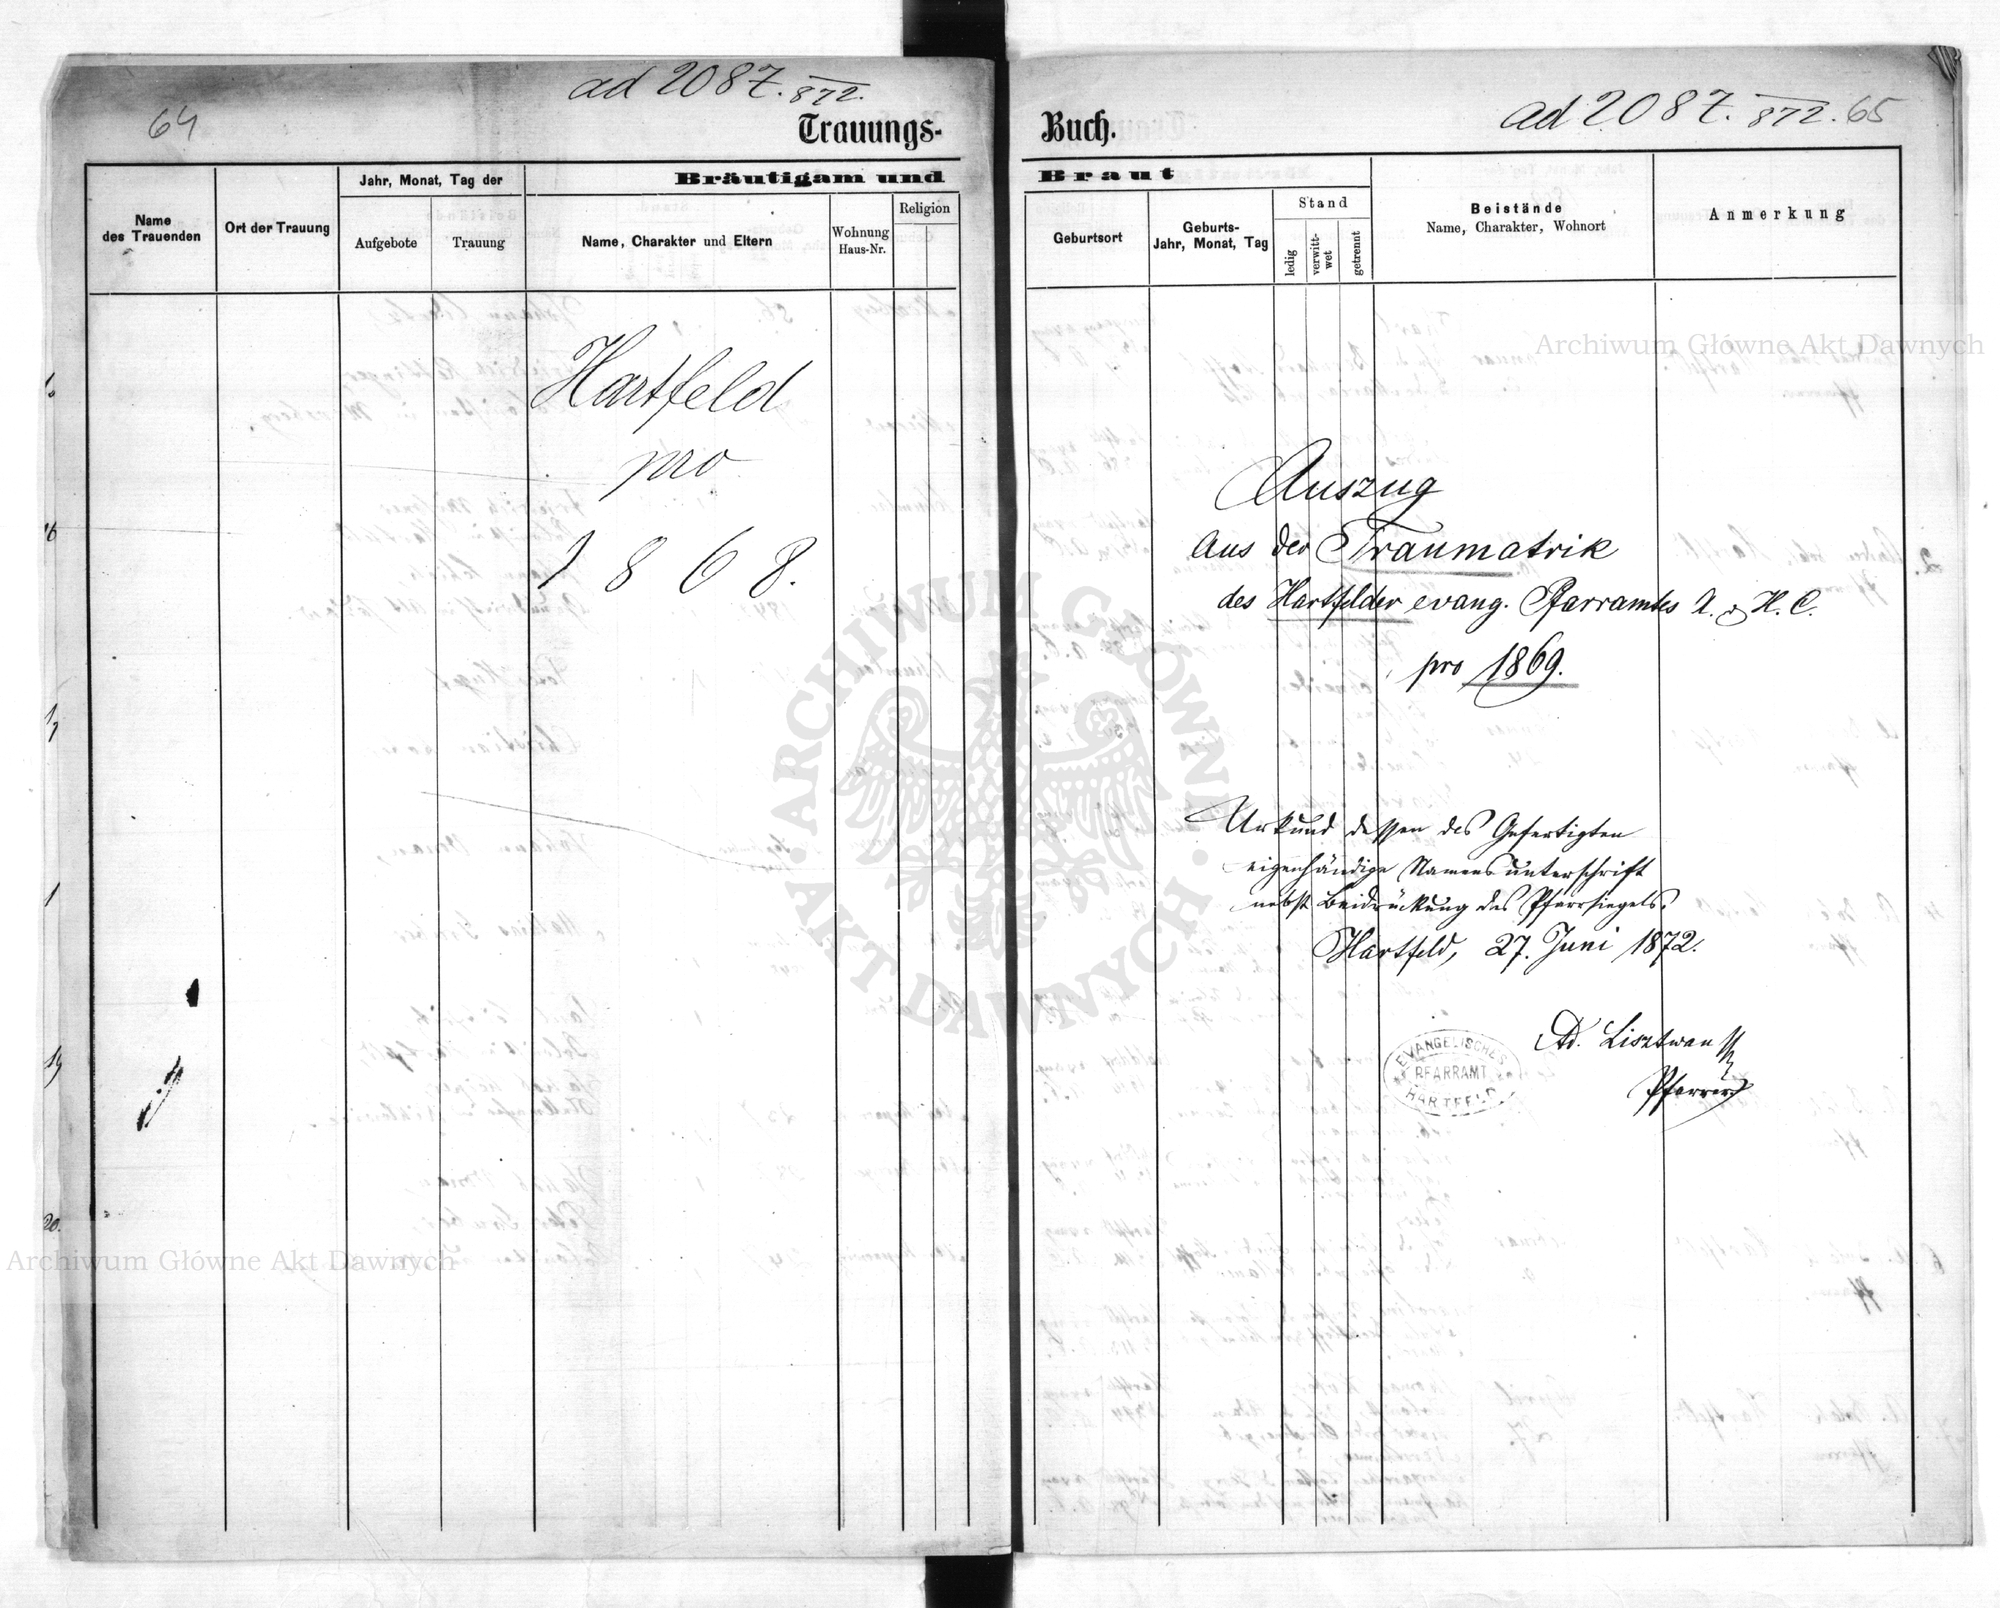 64
ad 2087. 872.
Trauungs-
Name des Trauenden
Ort der Trauung
Jahr, Monat, Tag der
Aufgebote
Trauung
Bräutigam und
Name, Charakter und Eltern
Wohnung Haus-Nr.
Religion
Hartfeld
pro
1868.
ad 2087. 872. 65
Buch.
Braut
Geburtsort
Geburts-
Jahr, Monat, Tag
Stand
ledig
verwitt-
wet
getrennt
Beistände
Name, Charakter, Wohnort
Anmerkung
Auszug
aus der Traumatrik
des Hartfelder evang. Pfarramtes A. & H. C.
pro 1869.
Urkund dessen des Gefertigten
eigenhändige Namensunterschrift
nebst Beidrückung des Pfarrsiegels.
Hartfeld, 27. Juni 1872.
Ad. Lisztwan
Pfarrer
EVANGELISCHES
PFARRAMT
HARTFELD
Archiwum Główne Akt Dawnych
ARCHIWUM GŁÓWNE AKT DAWNYCH
Archiwum Główne Akt Dawnych